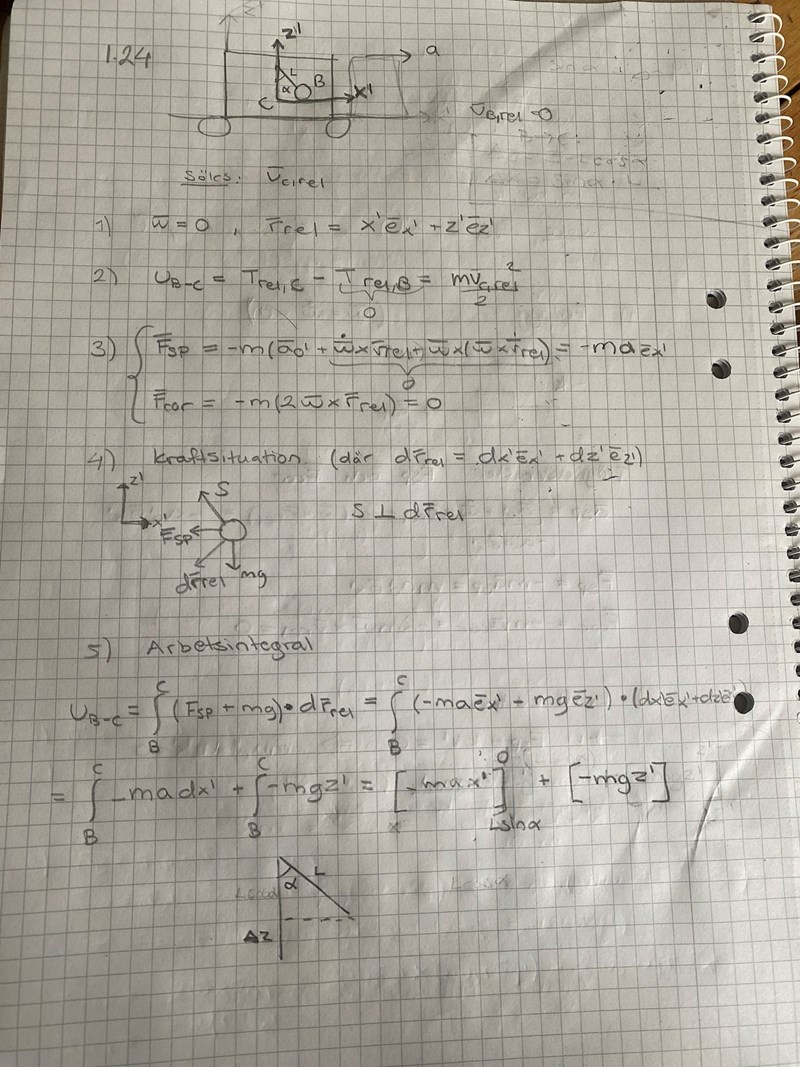 1.24
z'
a
L
B
α
C
x'
v̄B,rel = 0
Sökes: v̄c,rel
1) w̄ = 0 , r̄rel = x'ēx' + z'ēz'
2) UB-C = Trel,C - Trel,B = mvc,rel² / 2
0
3) { F̄sp = -m(ā0' + ẇ̄ × r̄rel + w̄ × (w̄ × r̄rel)) = -maēx'
0
F̄cor = -m(2w̄ × r̄rel) = 0
4) Kraftsituation (där dr̄rel = dx'ēx' + dz'ēz')
z'
S
x'
F̄sp
S ⊥ dr̄rel
dr̄rel mg
5) Arbetsintegral
UB-C = ∫BC (Fsp + mg) • dr̄rel = ∫BC (-maēx' - mgēz') • (dx'ēx' + dz'ē
= ∫BC -madx' + ∫BC -mgz' = [-max']Lsinα0 + [-mgz']
α
L
Δz